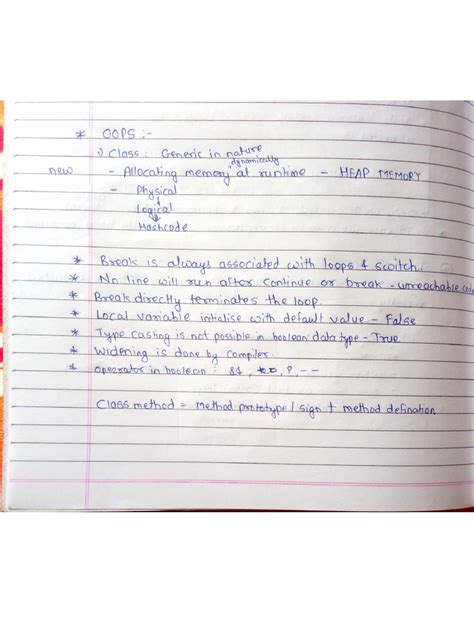 * OOPS :-
i) Class : Generic in nature
dynamically
new - Allocating memory at runtime - HEAP MEMORY
- Physical
↓
Logical
↓
Hashcode
* Break is always associated with loops & switch.
* No line will run after continue or break - unreachable
* Break directly terminates the loop.
* Local variable intialise with default value - False
* Type casting is not possible in boolean data type - True
* Widening is done by compiler.
* opecrator in boolean :
Class method = method prototype / sign + method defination